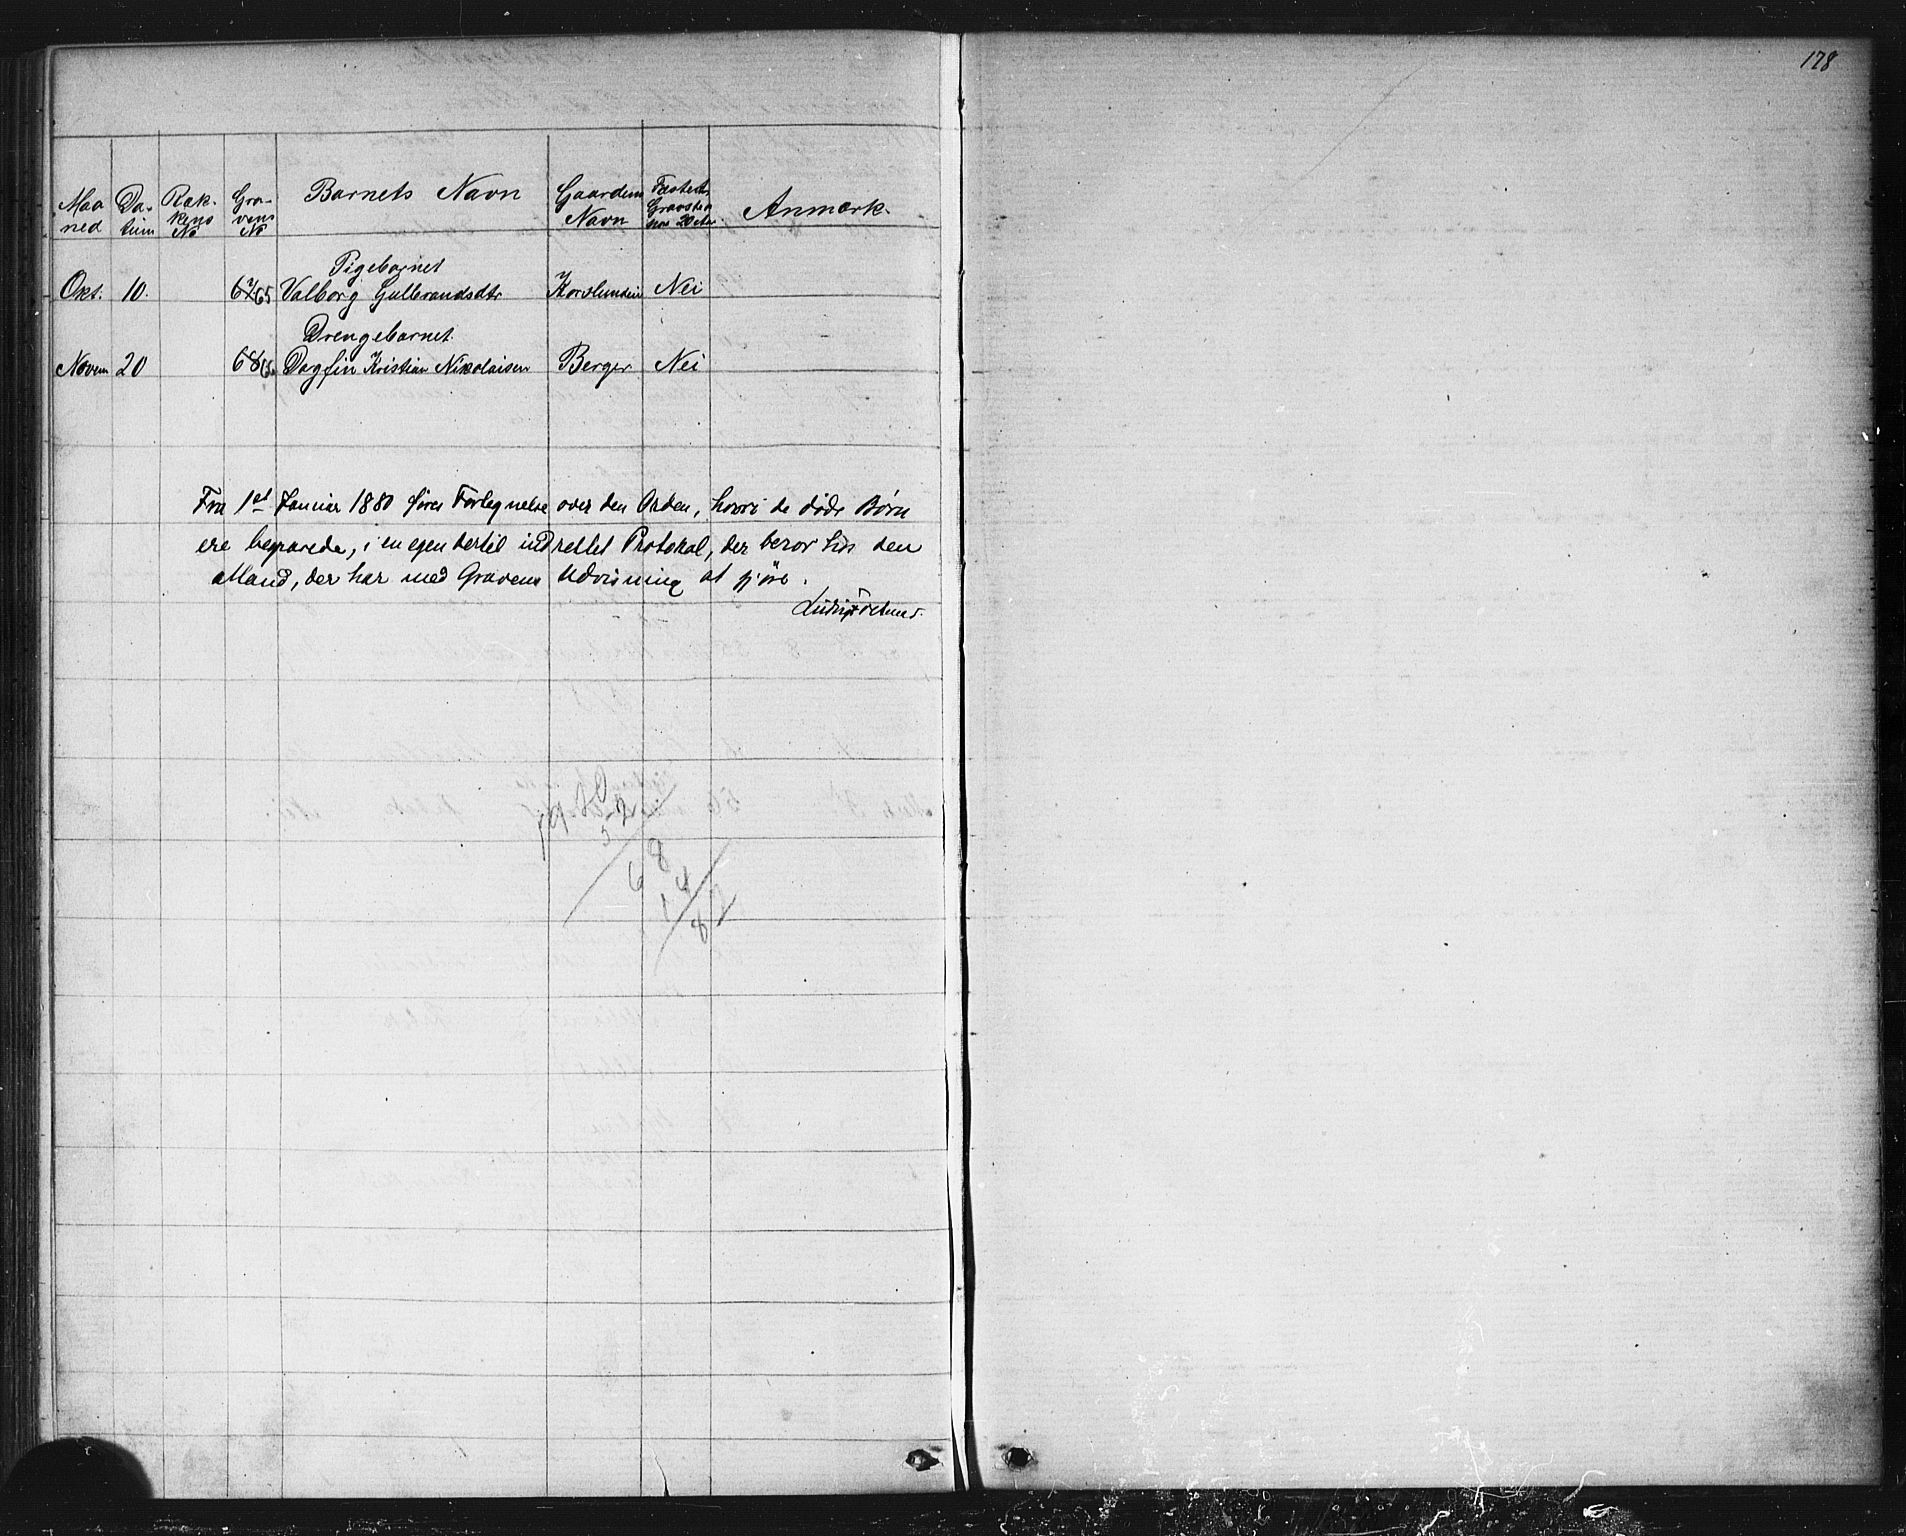 178
Maaned Datum Rækkens No Gravens No Barnets Navn Gaardens Navn Anmærk.
Pigebarnet
Okt. 10. 65 Valborg Gulbrandsdtr Korslunden Nei
Drengebarnet
Novem 20 Dagfin Kristian Nikolaisen Berger Nei
Fra 1st Januar 1880 føres Fortegnelse over den Orden, hvori de døde Børn
ere begravede, i en egen dertil indrettet Protokol, der beror hos den
Mand, der har med Gravens Udvisning at gjøre.
52
68
14
82